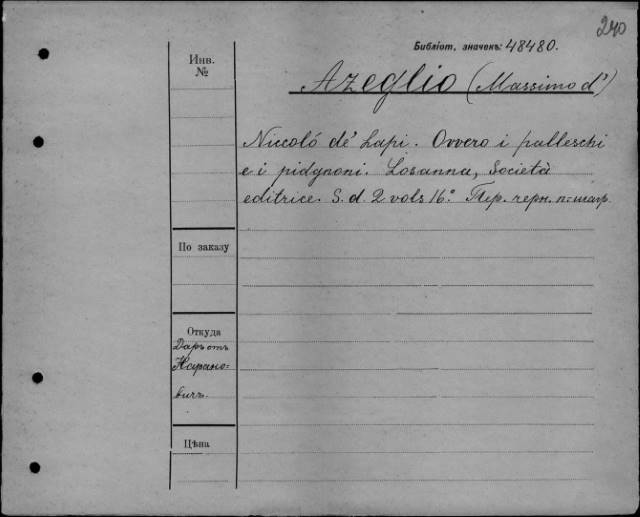 240
Библіот. значекъ: 48480.
Инв.
№
Azeglio (Massimo d')
Niccoló de' Lapi. Ovvero i palleschi
e i pidgnoni. Losanna, Società
editrice. S. d. 2 vols 16º. Пер. черн. п=шагр.
По заказу
Откуда
Даръ отъ
Нарано-
вичъ.
Цѣна